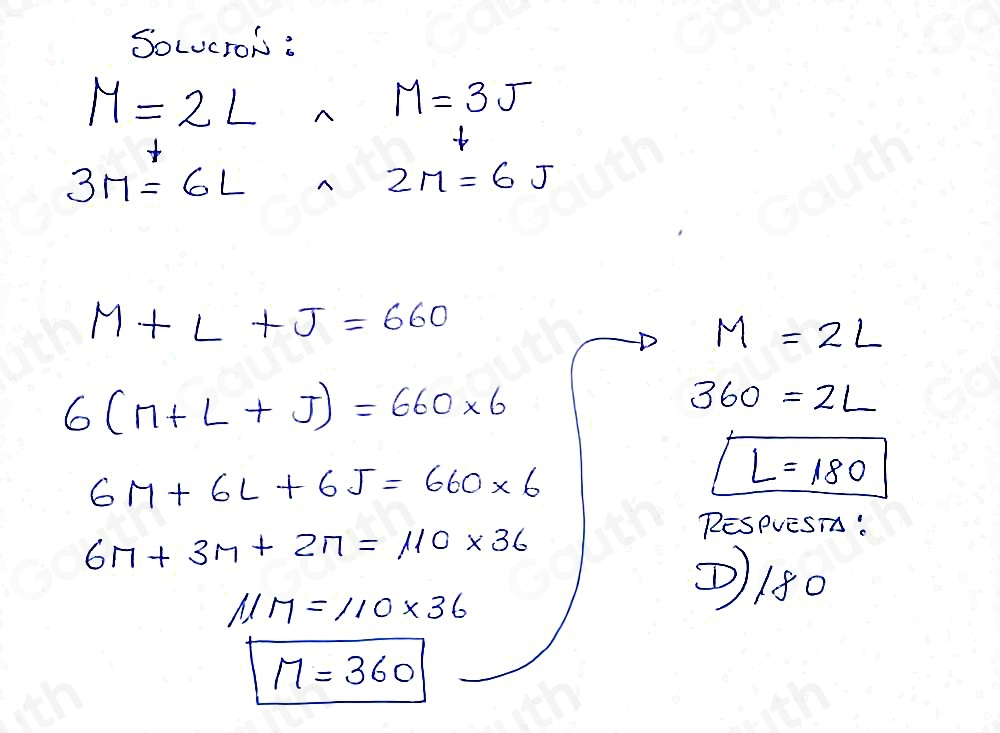 SOLUCIÓN:
M = 2L ^ M = 3J
↓ ↓
3M = 6L ^ 2M = 6J
M + L + J = 660
6(M + L + J) = 660 × 6
6M + 6L + 6J = 660 × 6
6M + 3M + 2M = 110 × 36
11M = 110 × 36
M = 360
M = 2L
360 = 2L
L = 180
RESPUESTA:
D) 180
Gauth